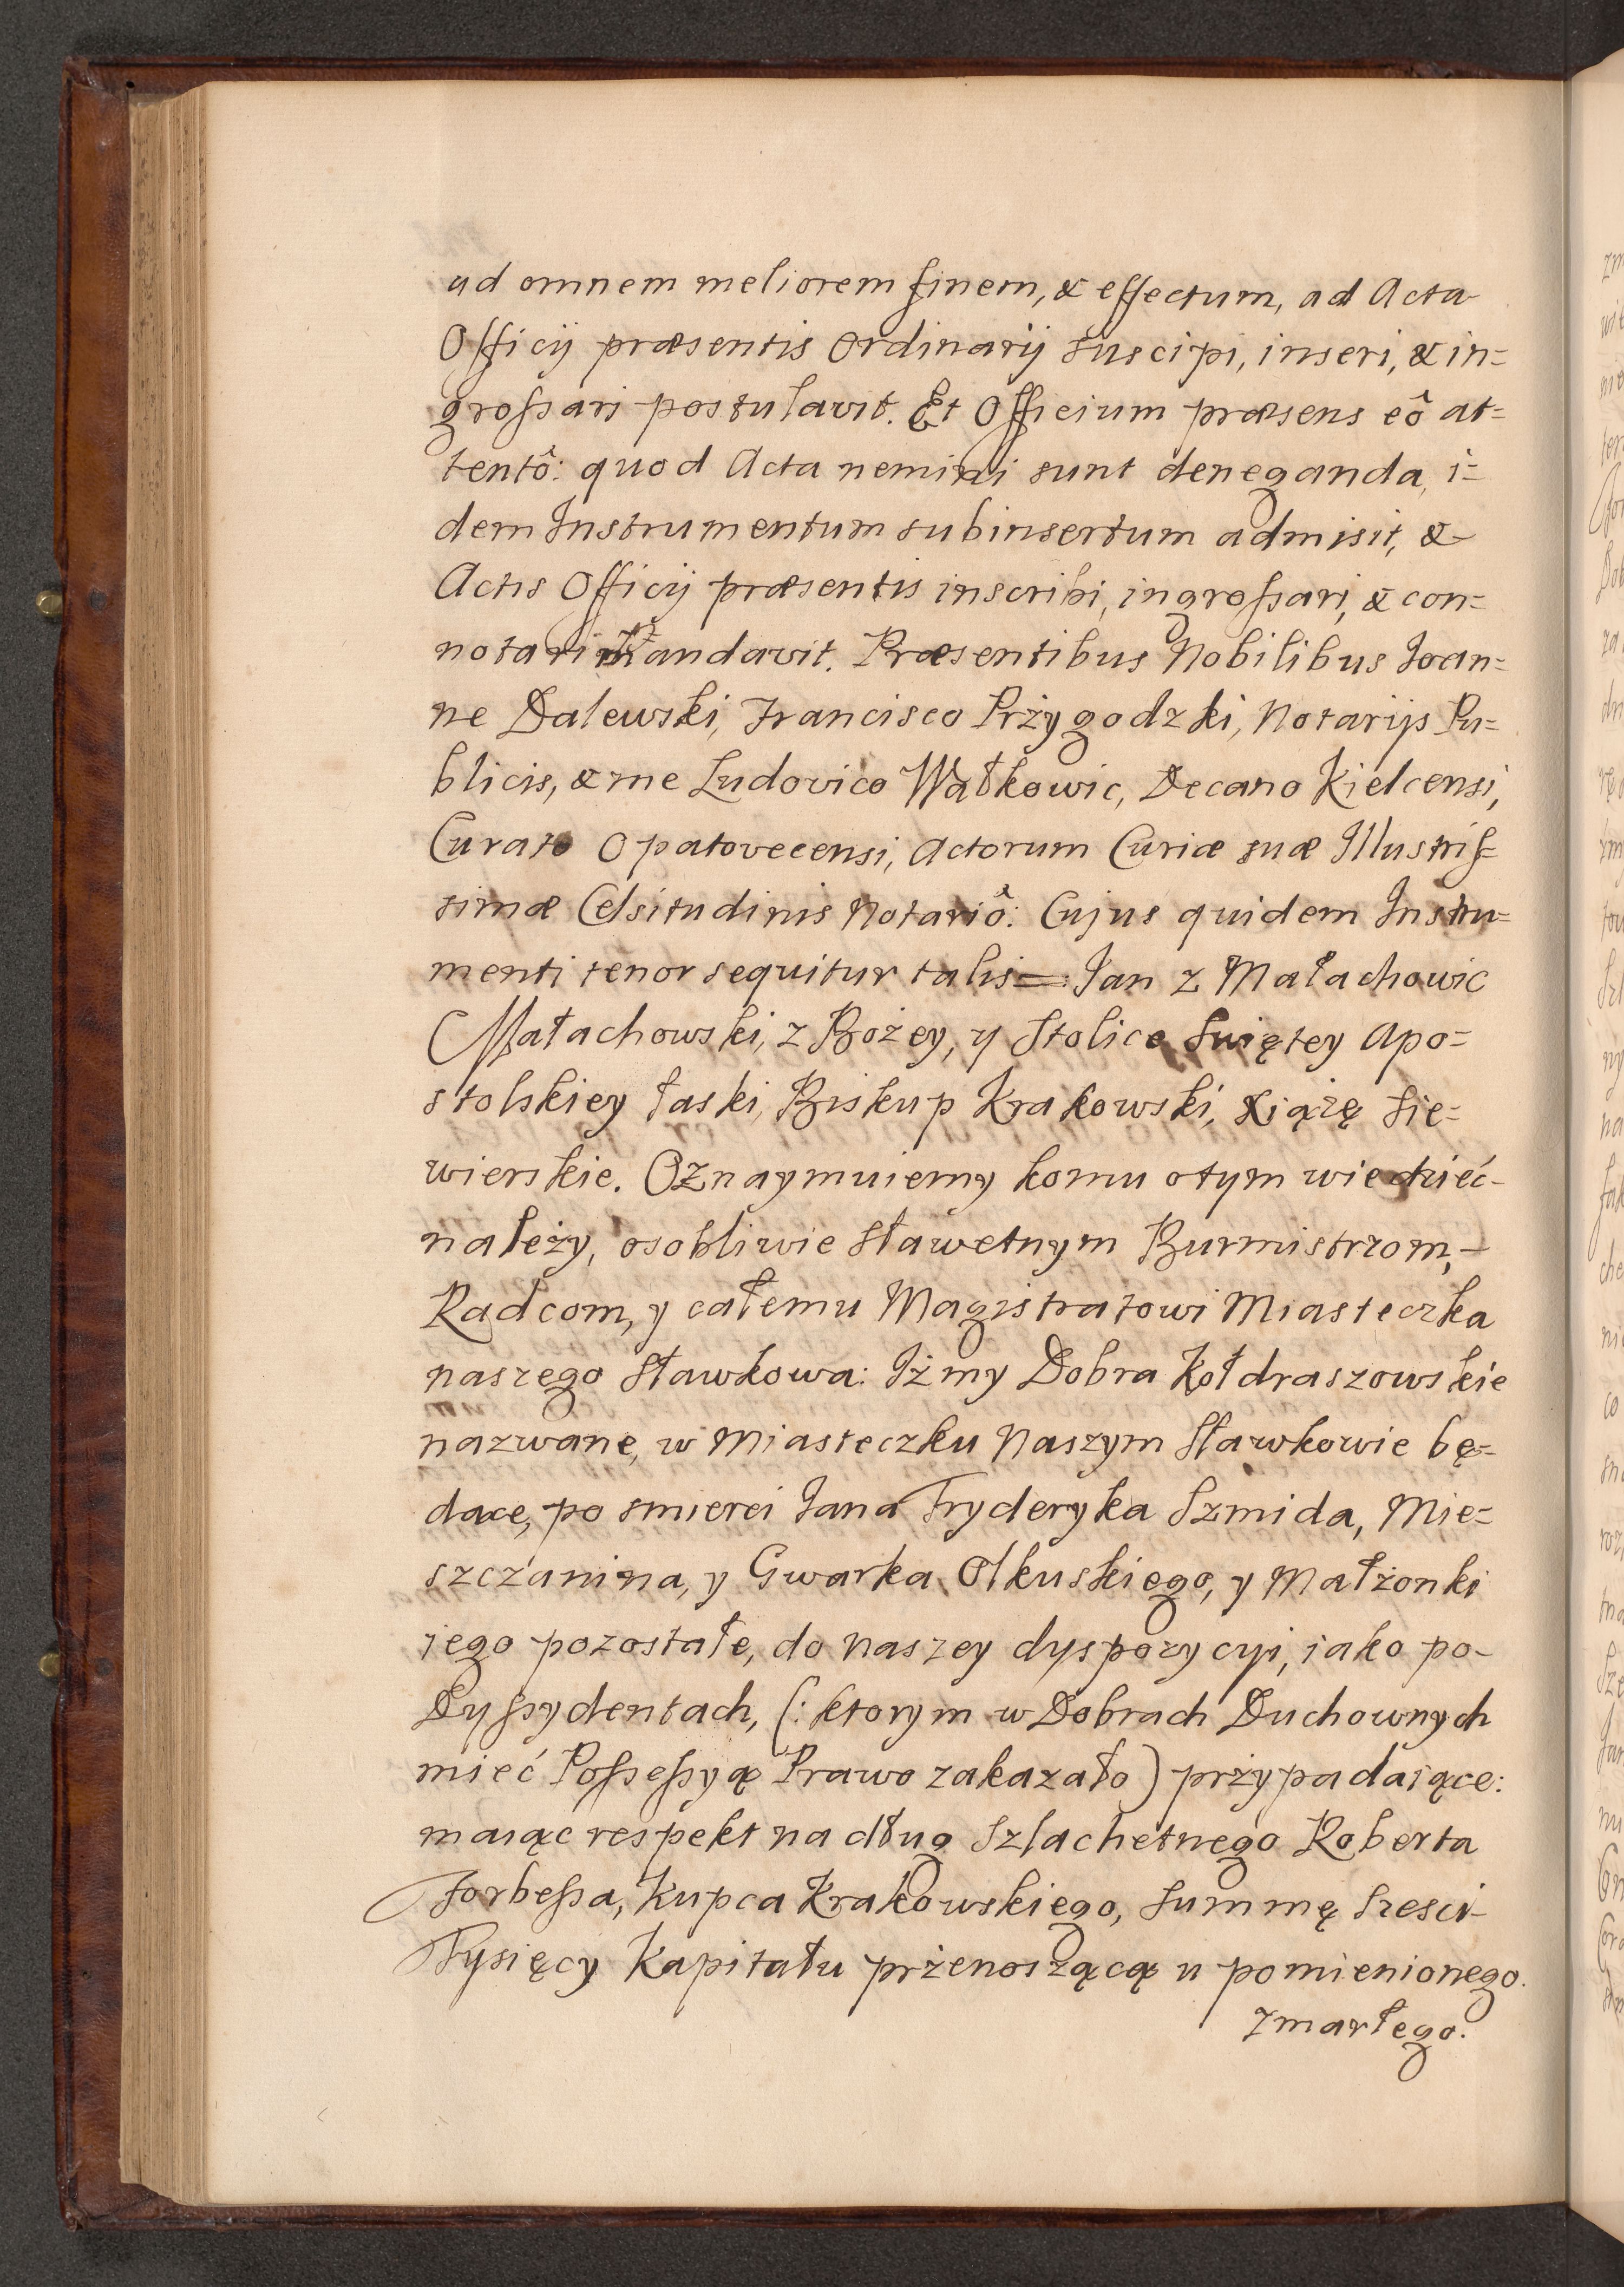 ad omnem meliorem finem, & effectum, ad Acta
Officij præsentis Ordinarij suscipi, inseri, & in=
grossari postulavit. Et Officium præsens eô at=
tentô: quod Acta nemini sunt deneganda, i=
dem Instrumentum subinsertum admisit, &
Actis Officij præsentis inscribi, ingrossari, & con=
notari mandavit. Præsentibus Nobilibus Joan=
ne Dalewski, Francisco Przygodzki, Notarijs Pu=
blicis, & me Ludovico Wałkowic, Decano Kielcensi,
Curato Opatovecensi, Actorum Curiæ suæ Illustris=
simæ Celsitudinis Notariô. Cujus quidem Instru=
menti tenor sequitur talis=: Jan z Małachowic
Małachowski, z Bożey, y Stolice Świętey Apo=
stolskiey łaski, Biskup Krakowski, Xiążę Sie=
wierskie. Oznaymuiemy komu otym wiedzieć-
należy, osobliwie Sławetnym Burmistrzom,-
Radcom, y całemu Magistratowi Miasteczka
naszego Sławkowa: Iż my Dobra Kołdraszowskie
nazwane, w Miasteczku Naszym Sławkowie bę=
dące, po smierci Jana Fryderyka Szmida, Mie=
szczanina, y Gwarka Olkuskiego, y Małżonki
iego pozostałe, do naszey dyspozycyi, iako po-
Dyssydentach, (: ktorym w Dobrach Duchownych
mieć Possessyą Prawo zakazało) przypadaiące:
maiąc respekt na dług Szlachetnego Roberta
Forbessa, Kupca Krakowskiego, Summę Szesci-
Tysięcy Kapitału przenoszącą u pomienionego.
zmarłego.